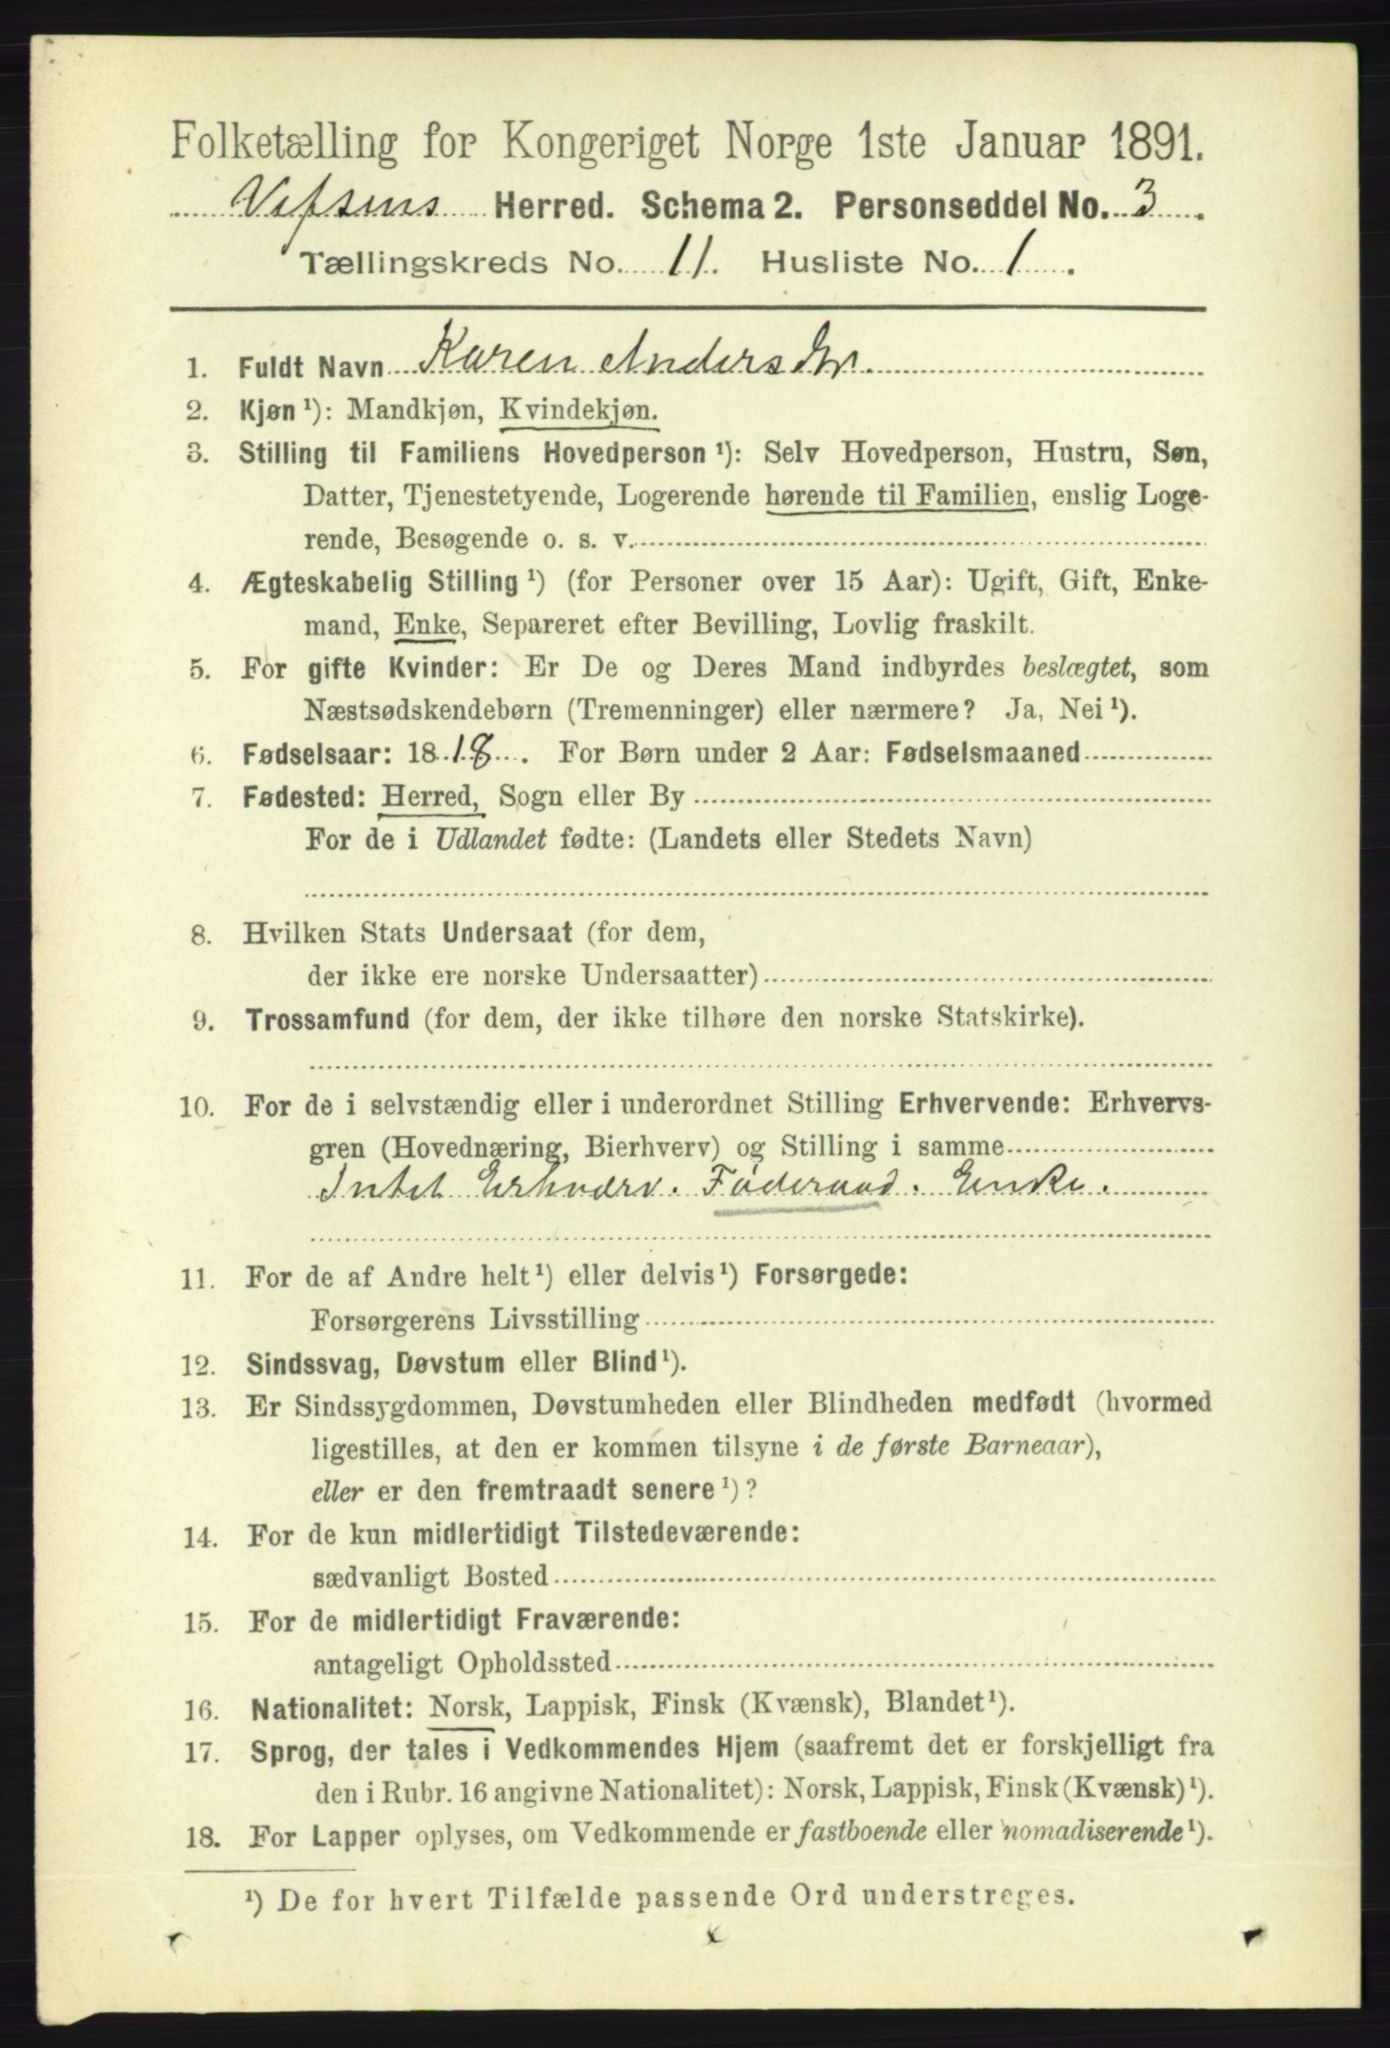 Folketælling for Kongeriget Norge 1ste Januar 1891.
Vefsens Herred. Schema 2. Personseddel No. 3.
Tællingskreds No. 11. Husliste No. 1.
1. Fuldt Navn Karen Andersdtr.
2. Kjøn ¹): Mandkjøn, Kvindekjøn.
3. Stilling til Familiens Hovedperson ¹): Selv Hovedperson, Hustru, Søn,
Datter, Tjenestetyende, Logerende hørende til Familien, enslig Loge-
rende, Besøgende o. s. v.
4. Ægteskabelig Stilling ¹) (for Personer over 15 Aar): Ugift, Gift, Enke-
mand, Enke, Separeret efter Bevilling, Lovlig fraskilt.
5. For gifte Kvinder: Er De og Deres Mand indbyrdes beslægtet, som
Næstsødskendebørn (Tremenninger) eller nærmere? Ja, Nei ¹).
6. Fødselsaar: 1818. For Børn under 2 Aar: Fødselsmaaned
7. Fødested: Herred, Sogn eller By
For de i Udlandet fødte: (Landets eller Stedets Navn)
8. Hvilken Stats Undersaat (for dem,
der ikke ere norske Undersaatter)
9. Trossamfund (for dem, der ikke tilhøre den norske Statskirke).
10. For de i selvstændig eller i underordnet Stilling Erhvervende: Erhvervs-
gren (Hovednæring, Bierhverv) og Stilling i samme
Intet Erhværv. Föderaad. Enke.
11. For de af Andre helt ¹) eller delvis ¹) Forsørgede:
Forsørgerens Livsstilling
12. Sindssvag, Døvstum eller Blind ¹).
13. Er Sindssygdommen, Døvstumheden eller Blindheden medfødt (hvormed
ligestilles, at den er kommen tilsyne i de første Barneaar),
eller er den fremtraadt senere ¹)?
14. For de kun midlertidigt Tilstedeværende:
sædvanligt Bosted
15. For de midlertidigt Fraværende:
antageligt Opholdssted
16. Nationalitet: Norsk, Lappisk, Finsk (Kvænsk), Blandet ¹).
17. Sprog, der tales i Vedkommendes Hjem (saafremt det er forskjelligt fra
den i Rubr. 16 angivne Nationalitet): Norsk, Lappisk, Finsk (Kvænsk) ¹).
18. For Lapper oplyses, om Vedkommende er fastboende eller nomadiserende ¹).
¹) De for hvert Tilfælde passende Ord understreges.